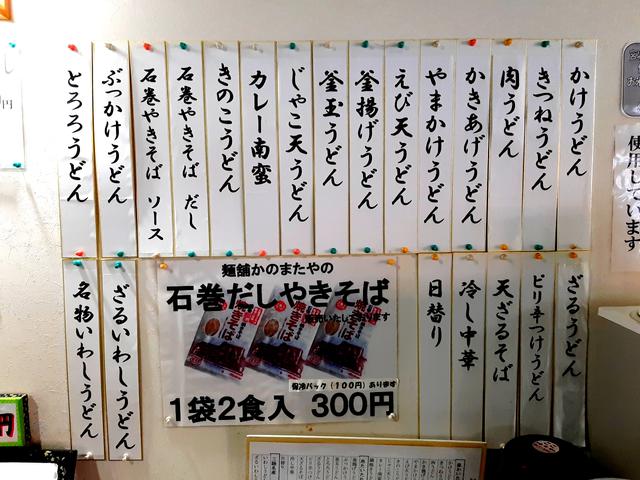 かけうどん
きつねうどん
肉うどん
かきあげうどん
やまかけうどん
えび天うどん
釜揚げうどん
釜玉うどん
じゃこ天うどん
カレー南蛮
きのこうどん
石巻やきそば だし
石巻やきそば ソース
ぶっかけうどん
とろろうどん
ざるうどん
ピリ辛つけうどん
天ざるそば
冷し中華
日替り
麺舗かのまたやの
石巻だしやきそば
保冷パック(100円)あります
1袋2食入 300円
ざるいわしうどん
名物いわしうどん
使用しています
円
円